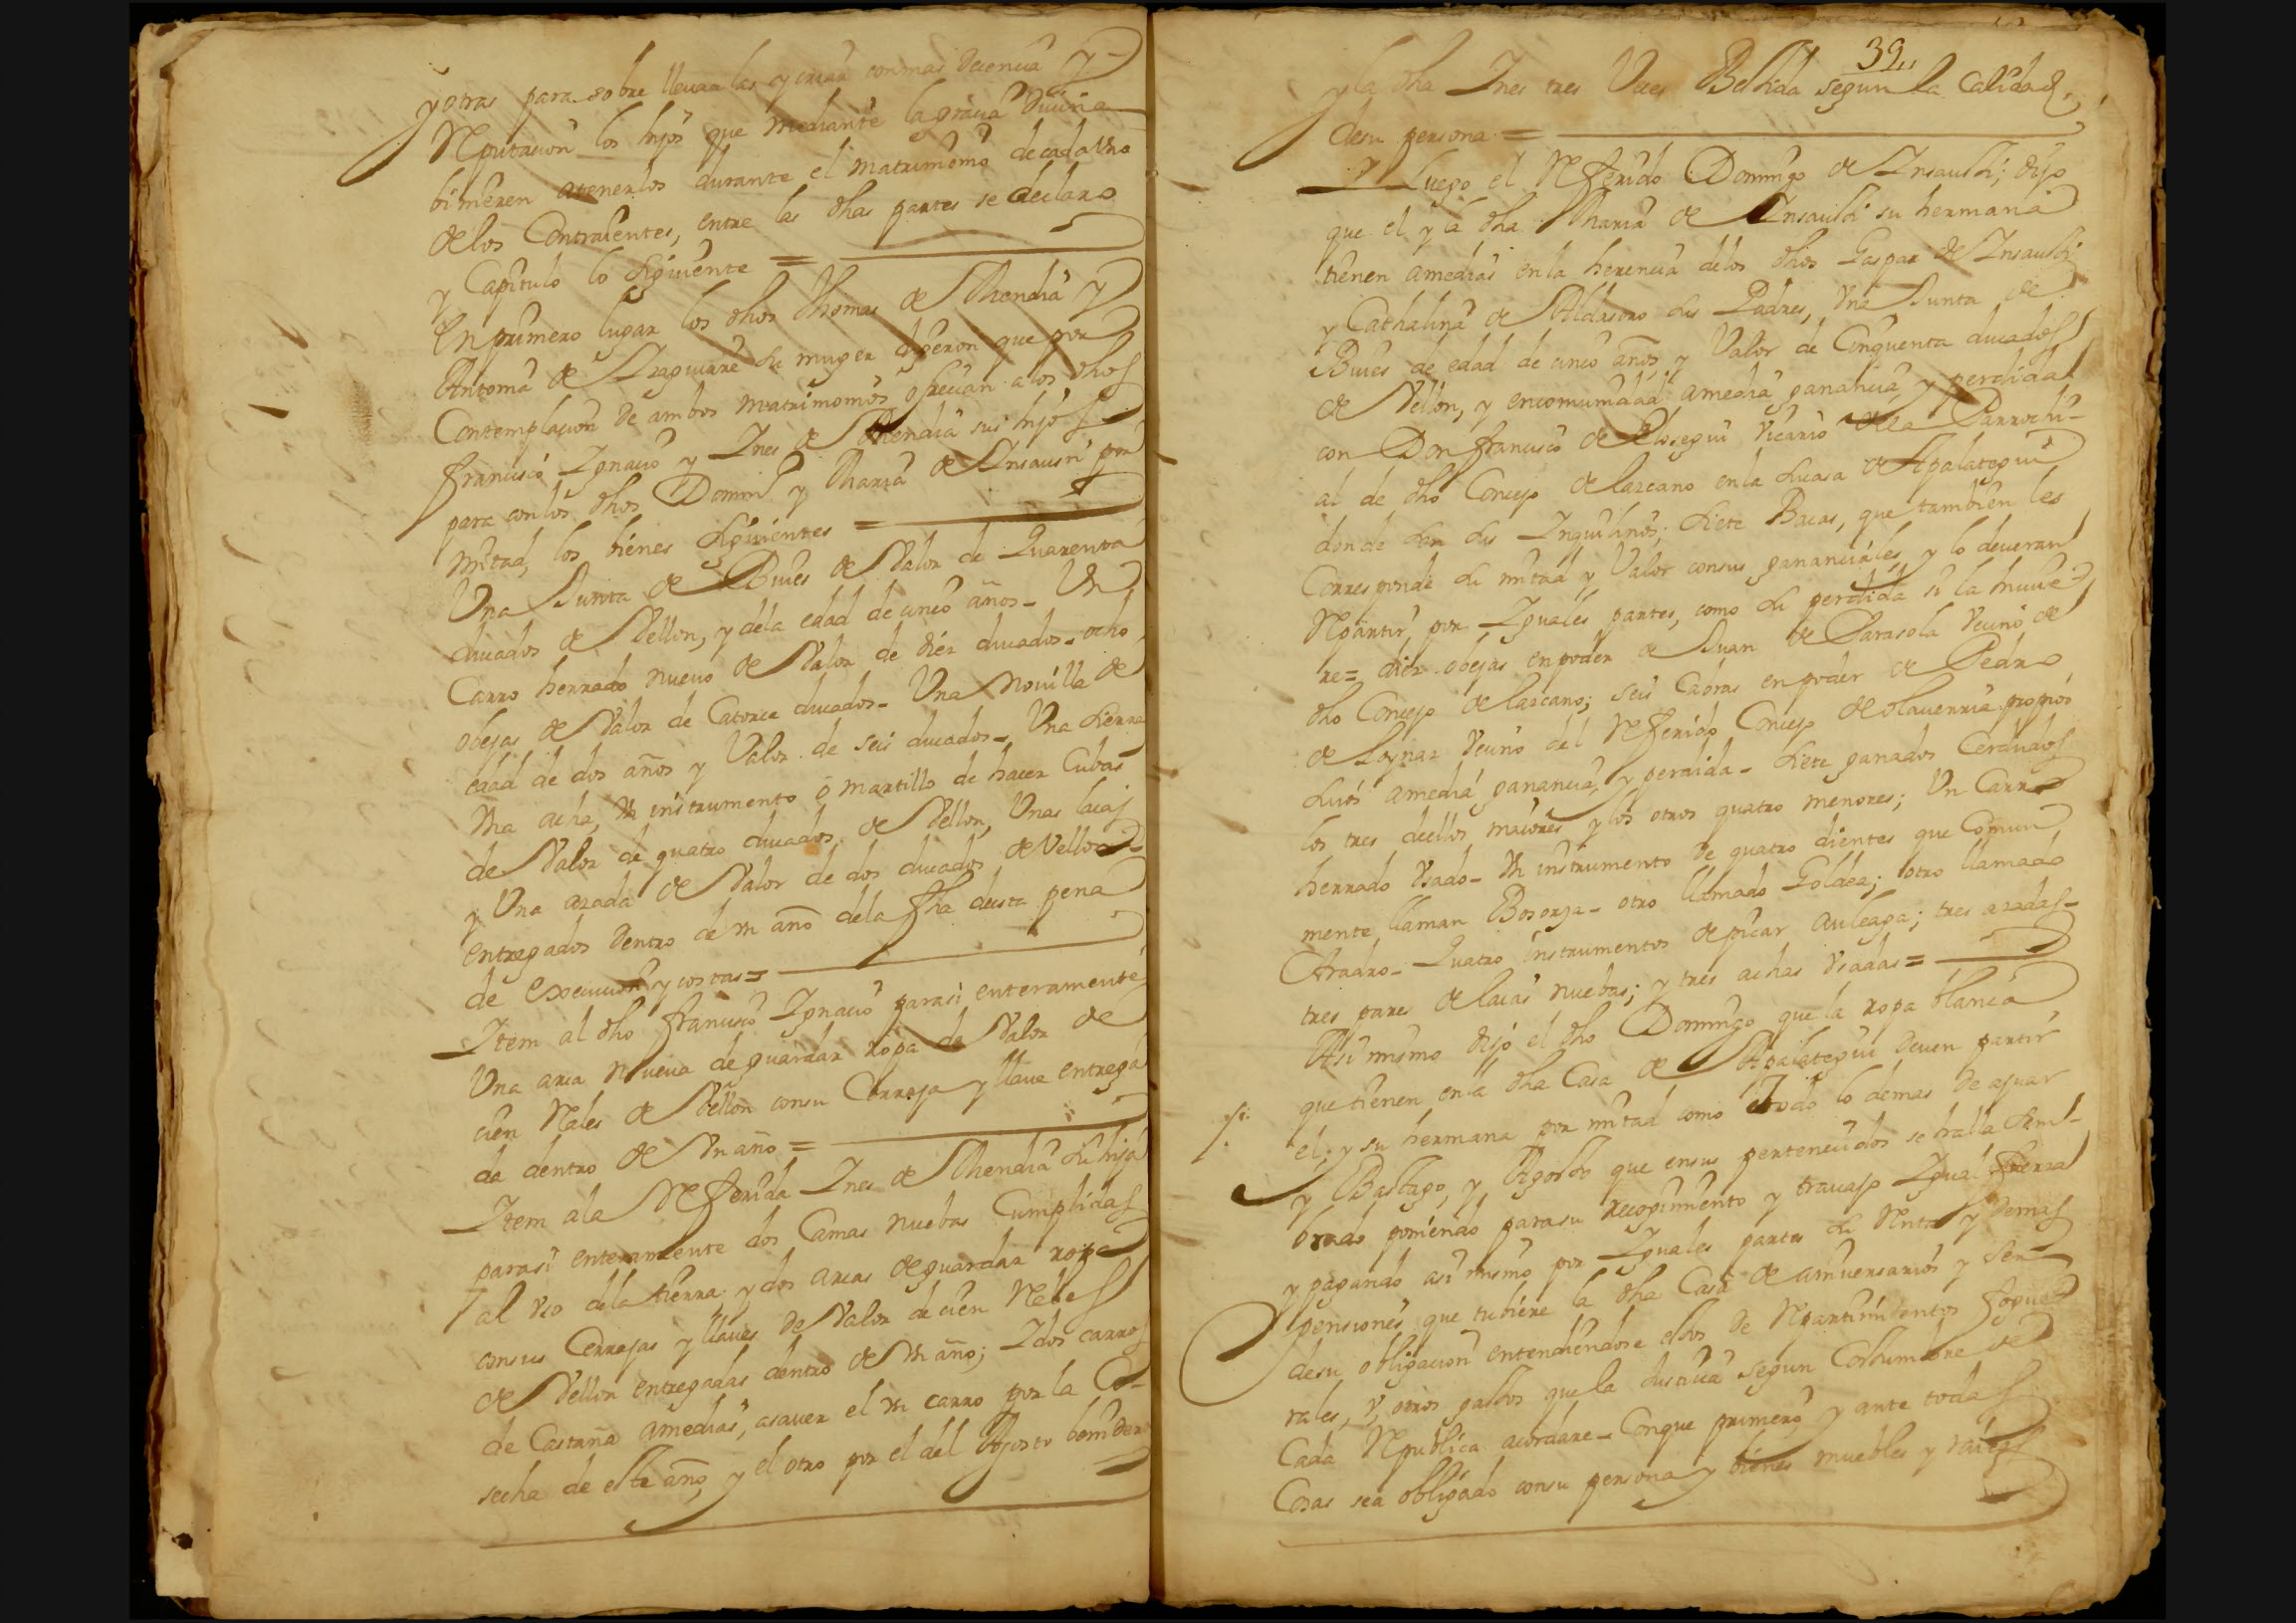 y otras para sobre llevar las y criar con mas decencia y
Reputacion los hijos que mediante la gracia Divina
bimieren atenerlos durante el matrimonio de cada Uno
de los Contraientes, entre las dhas partes se declaro
y Capitulo lo siguiente =
En primero lugar los dhos Thomas de Mendia y
Antonia de su muger dijeron que por
Contemplacion de ambos matrimonios ofrecian a los dhos
francisco Ignacio y Ines de Mendia sus hijos
para con los dhos Domingo y Maria de Insausti por
mitad, los bienes siguientes =
Una Junta de Bueies de Valor de Quarenta
ducados de Vellon, y de la edad de cinco años - Un
Carro herrado nuevo de Valor de diez ducados - ocho
obejas de Valor de Catorce ducados - Una Novilla de
edad de dos años y Valor de seis ducados - Una sierra
Una acha, Un instrumento o martillo de hacer Cubas
de Valor de quatro ducados de Vellon, Unas laias
y Una azada de Valor de dos ducados de Vellon
entregados dentro de Un año de la fha desta pena
de execucion y costas =
Item al dho francisco Ignacio para si enteramente
Una arca nueva de guardar ropa de Valor de
cien Reales de Vellon con su Cerraja y llave entrega
da dentro de Un año =
Item a la Referida Ines de Mendia su hija
para si enteramente dos Camas nuebas Cumplidas
al Uso de la tierra y dos arcas de guardar ropa
con sus Cerrajas y llaves de Valor de cien Reales
de Vellon entregadas dentro de Un año; I dos carros
de Castaña amedias, asaver el Un carro por la Co-
secha de este año, y el otro por el del Agosto benider
39
y la dha Ines tres Veces Bestida segun la Calidad
de su persona =
I luego el Referido Domingo de Insausti; dijo
que el y la dha Maria de Insausti su hermana
tienen amedias en la herencia de los dhos Gaspar de Insausti
y Cathalina de Aldasoro sus Padres, Una Junta de
Bueies de edad de cinco años, y Valor de Cinquenta ducados
de Vellon, y encomunidad amedia ganancia, y perdida
con Don francisco de Elosegui Vicario de la Parrochi-
al de dho Concejo de lazcano en la su casa de Apalategui
donde son sus Inquilinos; siete Bacas, que tambien les
Corresponde su mitad y Valor con sus gananciales, y lo deveran
Repartir por Iguales partes, como su perdida si la huvie
re = diez obejas en poder de Juan de Sarasola Vecino de
dho Concejo de lazcano; seis Cabras en poder de Pedro
de loynaz Vecino del Referido Concejo de olaverria propios
suios amedia ganancia, y perdida - siete ganados Cerdudos
los tres de ellos maiores y los otros quatro menores; Un Carro
herrado Usado - Un instrumento de quatro dientes que Comun
mente llaman Bosorza - otro llamado Goldea; otro llamado
Aradro - Quatro instrumentos de picar auleaga; tres azadas -
tres pares de laias nuebas; y tres achas Usadas =
Asi mismo dijo el dho Domingo que la ropa blanca
que tienen en la dha Casa de Apalategui deven partir
el, y su hermana por mitad como todo lo demas de ajuar
y Bastago, y Agosto que en sus pertenecidos se halla sem-
brado poniendo para su recogimiento y travajo Igual fuerza
y pagando asi mismo por Iguales partes su Renta y demas
pensiones que tubiere la dha Casa de aniversarios y Ser
de su obligacion entendiendose ellos de Repartimientos fogue
rales, y otros gastos que la segun Costumbre de
Cada Republica acordare - Conque primero y ante todas
Cosas sea obligado con su persona y bienes muebles y raices